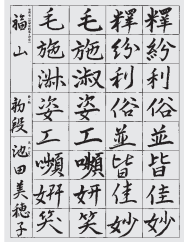 釋紛利俗並皆佳妙
釋紛利俗並皆佳妙
毛施淑姿工嚬妍笑
毛施淑姿工嚬妍笑
福山 初段 池田美穂子